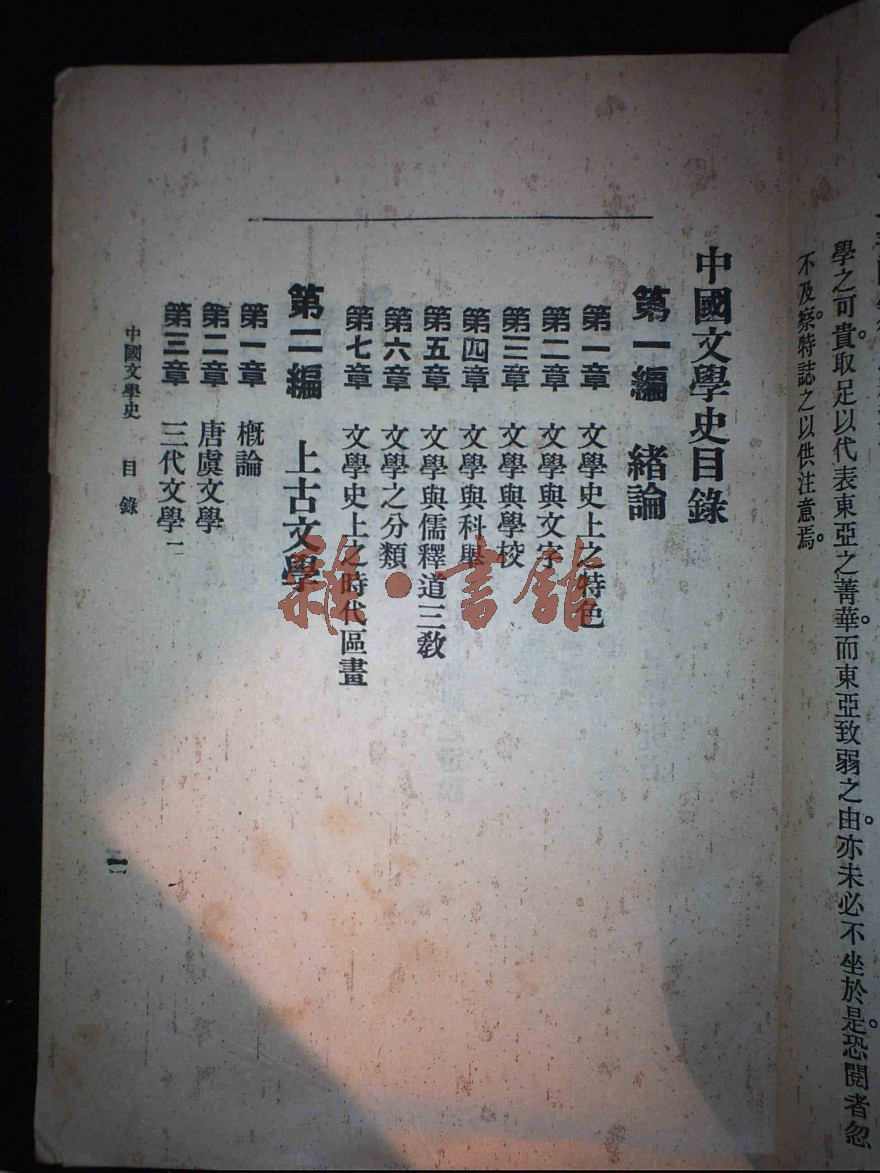 學之可貴。取足以代表東亞之菁華。而東亞致弱之由。亦未必不坐於是。恐閱者忽
不及察。特誌之以供注意焉。
中國文學史目錄
第一編 緒論
第一章 文學史上之特色
第二章 文學與文字
第三章 文學與學校
第四章 文學與科舉
第五章 文學與儒釋道三敎
第六章 文學之分類
第七章 文學史上之時代區畫
第二編 上古文學
第一章 槪論
第二章 唐虞文學
第三章 三代文學一
中國文學史 目錄
一
雜·書館